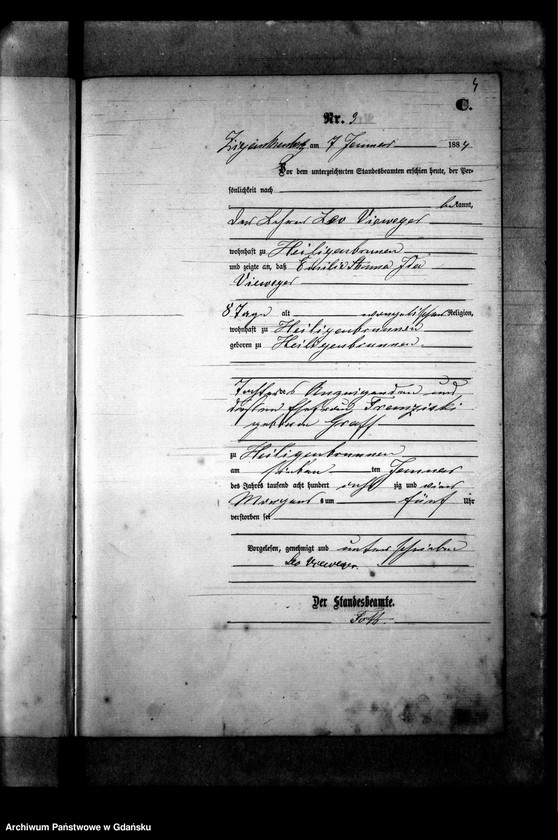 4
C.
Nr. 3
am 7 Januar 1884
Vor dem unterzeichneten Standesbeamten erschien heute, der Per-
sönlichkeit nach
bekannt,
der Lehrer Leo Vieweger
wohnhaft zu Heiligenbrunnen
und zeigte an, daß Emilie Anna Ida
Vieweger
8 Tage alt evangelischer Religion,
wohnhaft zu Heiligenbrunnen
geboren zu Heiligenbrunnen
Tochter des Anzeigenden und
dessen Ehefrau Franziska
geborene Graff
zu Heiligenbrunnen
am sieben ten Januar
des Jahres tausend acht hundert acht zig und vier
Morgens um fünf Uhr
verstorben sei
Vorgelesen, genehmigt und unterschrieben
Leo Vieweger.
Der Standesbeamte.
Archiwum Państwowe w Gdańsku